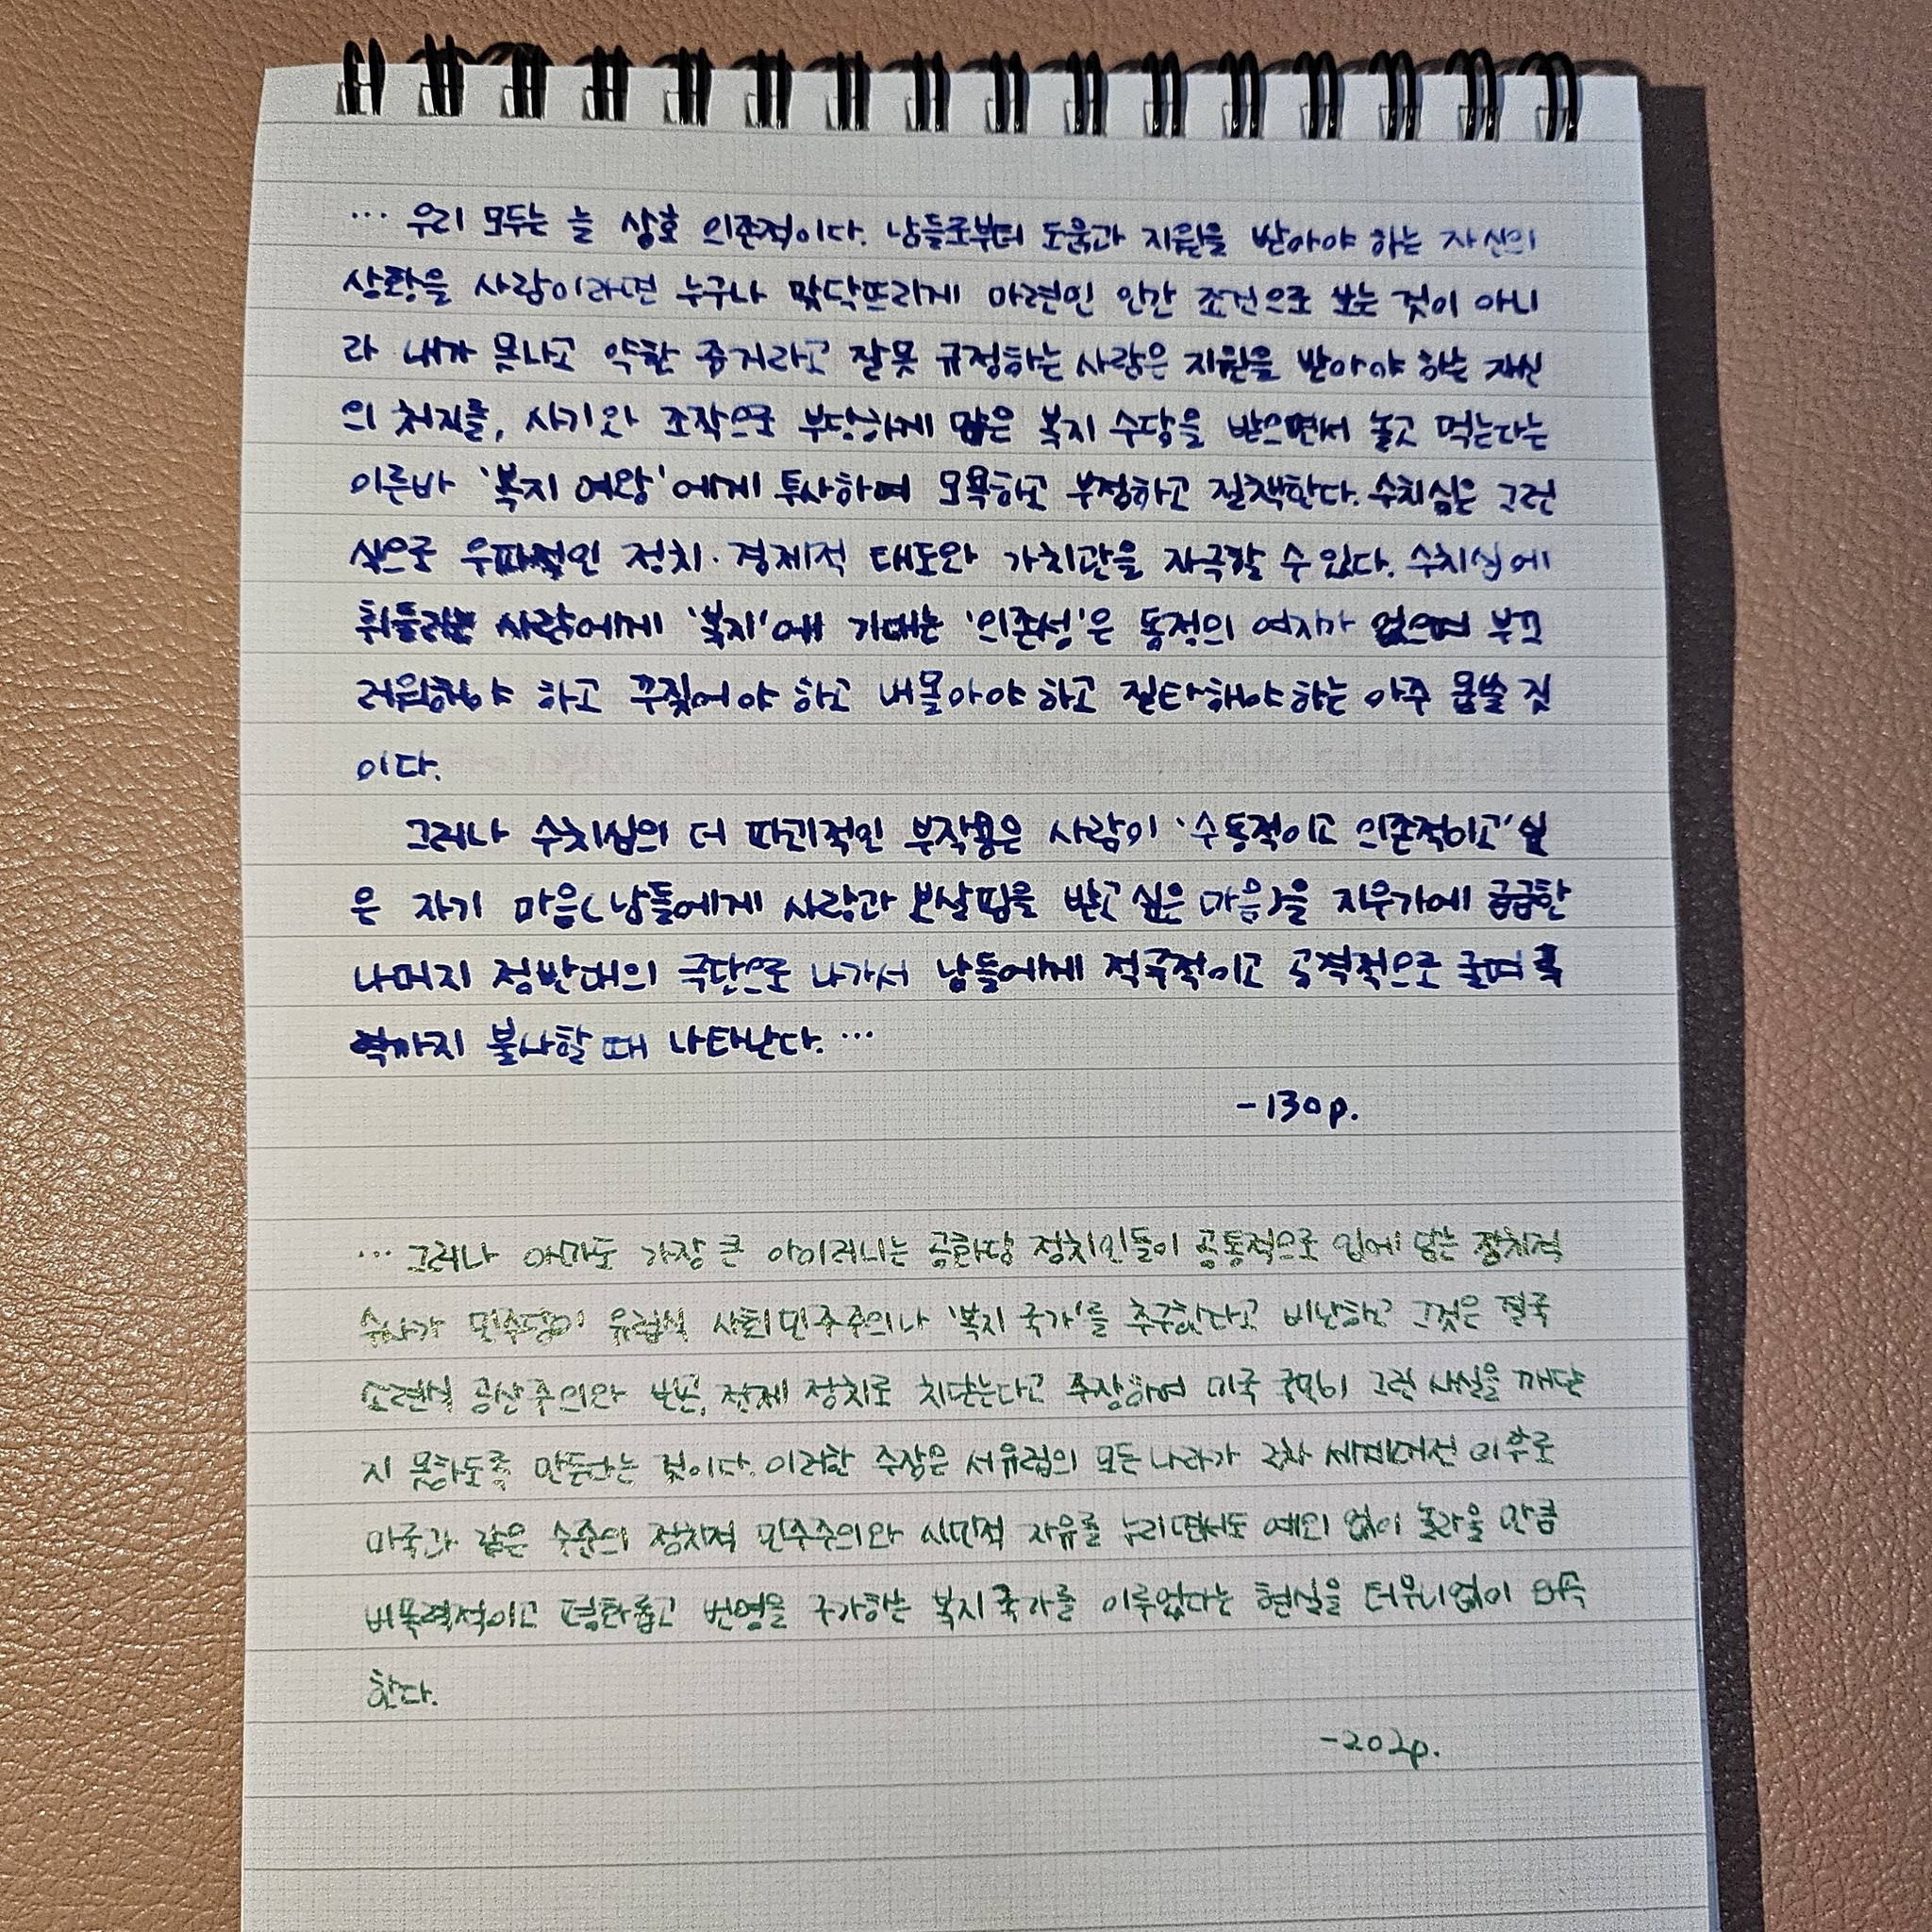 … 우리 모두는 늘 상호 의존적이다. 남들로부터 도움과 지원을 받아야 하는 자신의
상황을 사람이라면 누구나 맞닥뜨리게 마련인 인간 조건으로 보는 것이 아니
라 내가 못나고 약한 증거라고 잘못 규정하는 사람은 지원을 받아야 하는 자신
의 처지를, 사기와 조작으로 부당하게 많은 복지 수당을 받으면서 놀고 먹는다는
이른바 '복지 여왕'에게 투사하여 모욕하고 부정하고 질책한다. 수치심은 그런
식으로 우파적인 정치·경제적 태도와 가치관을 자극할 수 있다. 수치심에
휘둘리는 사람에게 '복지'에 기대는 '의존성'은 동정의 여지가 없으며 부끄
러워해야 하고 꾸짖어야 하고 내몰아야 하고 질타해야 하는 아주 몹쓸 짓
이다.
그러나 수치심의 더 파괴적인 부작용은 사람이 '수동적이고 의존적이고' 싶
은 자기 마음(남들에게 사랑과 보살핌을 받고 싶은 마음)을 지우기에 급급한
나머지 정반대의 극단으로 나가서 남들에게 적극적이고 공격적으로 굴며 폭
력까지 불사할 때 나타난다. …
-130p.
… 그러나 아마도 가장 큰 아이러니는 공화당 정치인들이 공통적으로 입에 담는 정치적
수사가 민주당이 유럽식 사회민주주의나 '복지 국가'를 추구한다고 비난하고 그것은 결국
소련식 공산주의와 빈곤, 전제 정치로 치닫는다고 주장하여 미국 국민이 그런 사실을 깨닫
지 못하도록 만든다는 것이다. 이러한 주장은 서유럽의 모든 나라가 2차 세계대전 이후로
미국과 같은 수준의 정치적 민주주의와 시민적 자유를 누리면서도 예외 없이 놀라울 만큼
비폭력적이고 평화롭고 번영을 구가하는 복지 국가를 이루었다는 현실을 터무니없이 왜곡
한다.
-202p.